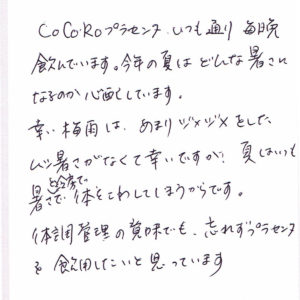 CoCoRoプラセンタ、いつも通り毎日晩
飲んでいます。今年の夏はどんな暑さに
なるのか心配しています。
幸い梅雨は、あまりジメジメをした
ムシ暑さがなくて幸いですが、夏はいつも
暑さで体をこわしてしまうからです。
体調管理の意味でも、忘れずプラセンタ
を飲用したいと思っています